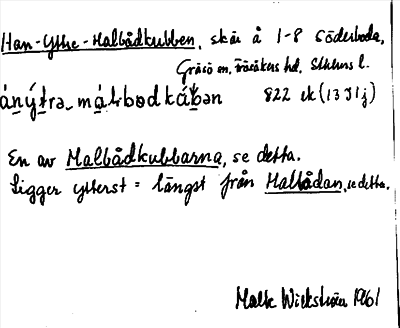 Han-Yttre-Malbådkubben, skär å 1-8 Söderboda,
Gräsö sn, Frösåkers hd, Sthlms l.
822 ek (13 I 1 j)
En av Malbådkubbarna, se detta.
Ligger ytterst = längst från Malbådan, se detta.
Malte Wickström 1961